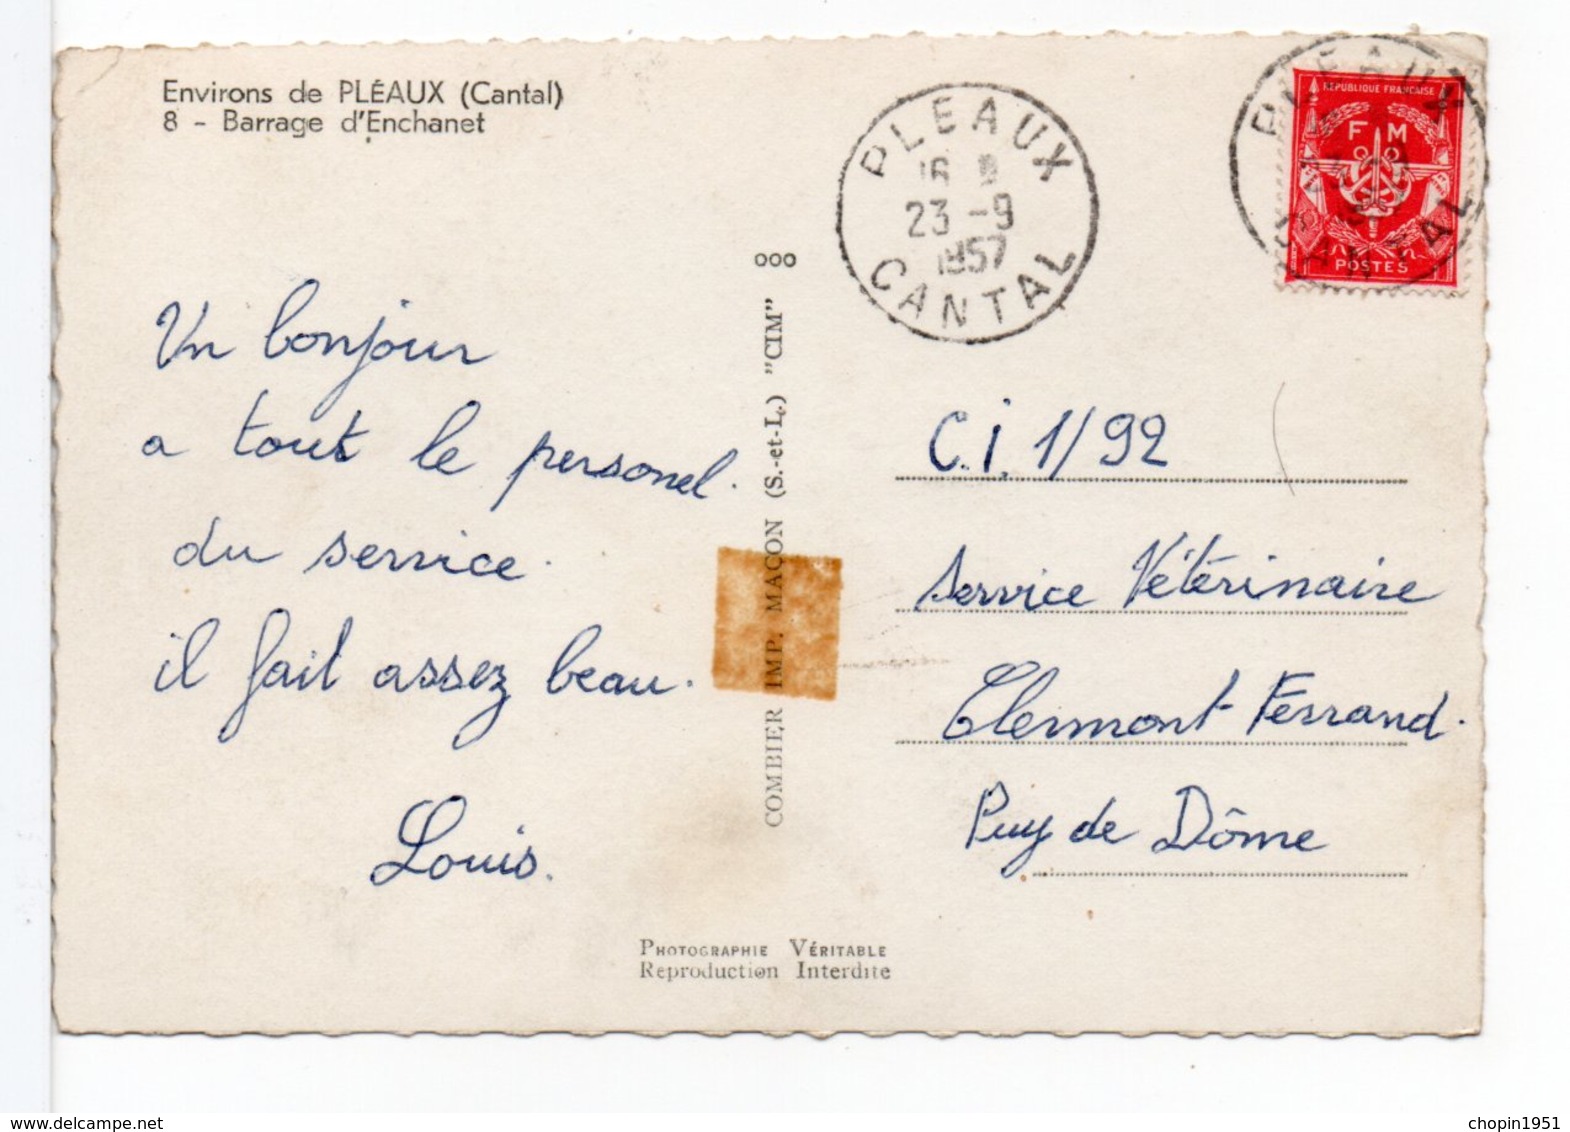 Environs de PLÉAUX (Cantal)
8 - Barrage d'Enchanet
Un bonjour
a tout le personel.
du service.
il fait assez beau.
Louis.
ooo
COMBIER IMP. MAÇON (S.-et-L.) "CIM"
PLEAUX
16 H
23 -9
1957
CANTAL
REPUBLIQUE FRANCAISE
F M
POSTES
PLEAUX
CANTAL
C.I. 1/92
Service Vétérinaire
Clermont Ferrand.
Puy de Dôme
PHOTOGRAPHIE VÉRITABLE
Reproduction Interdite
chopin1951